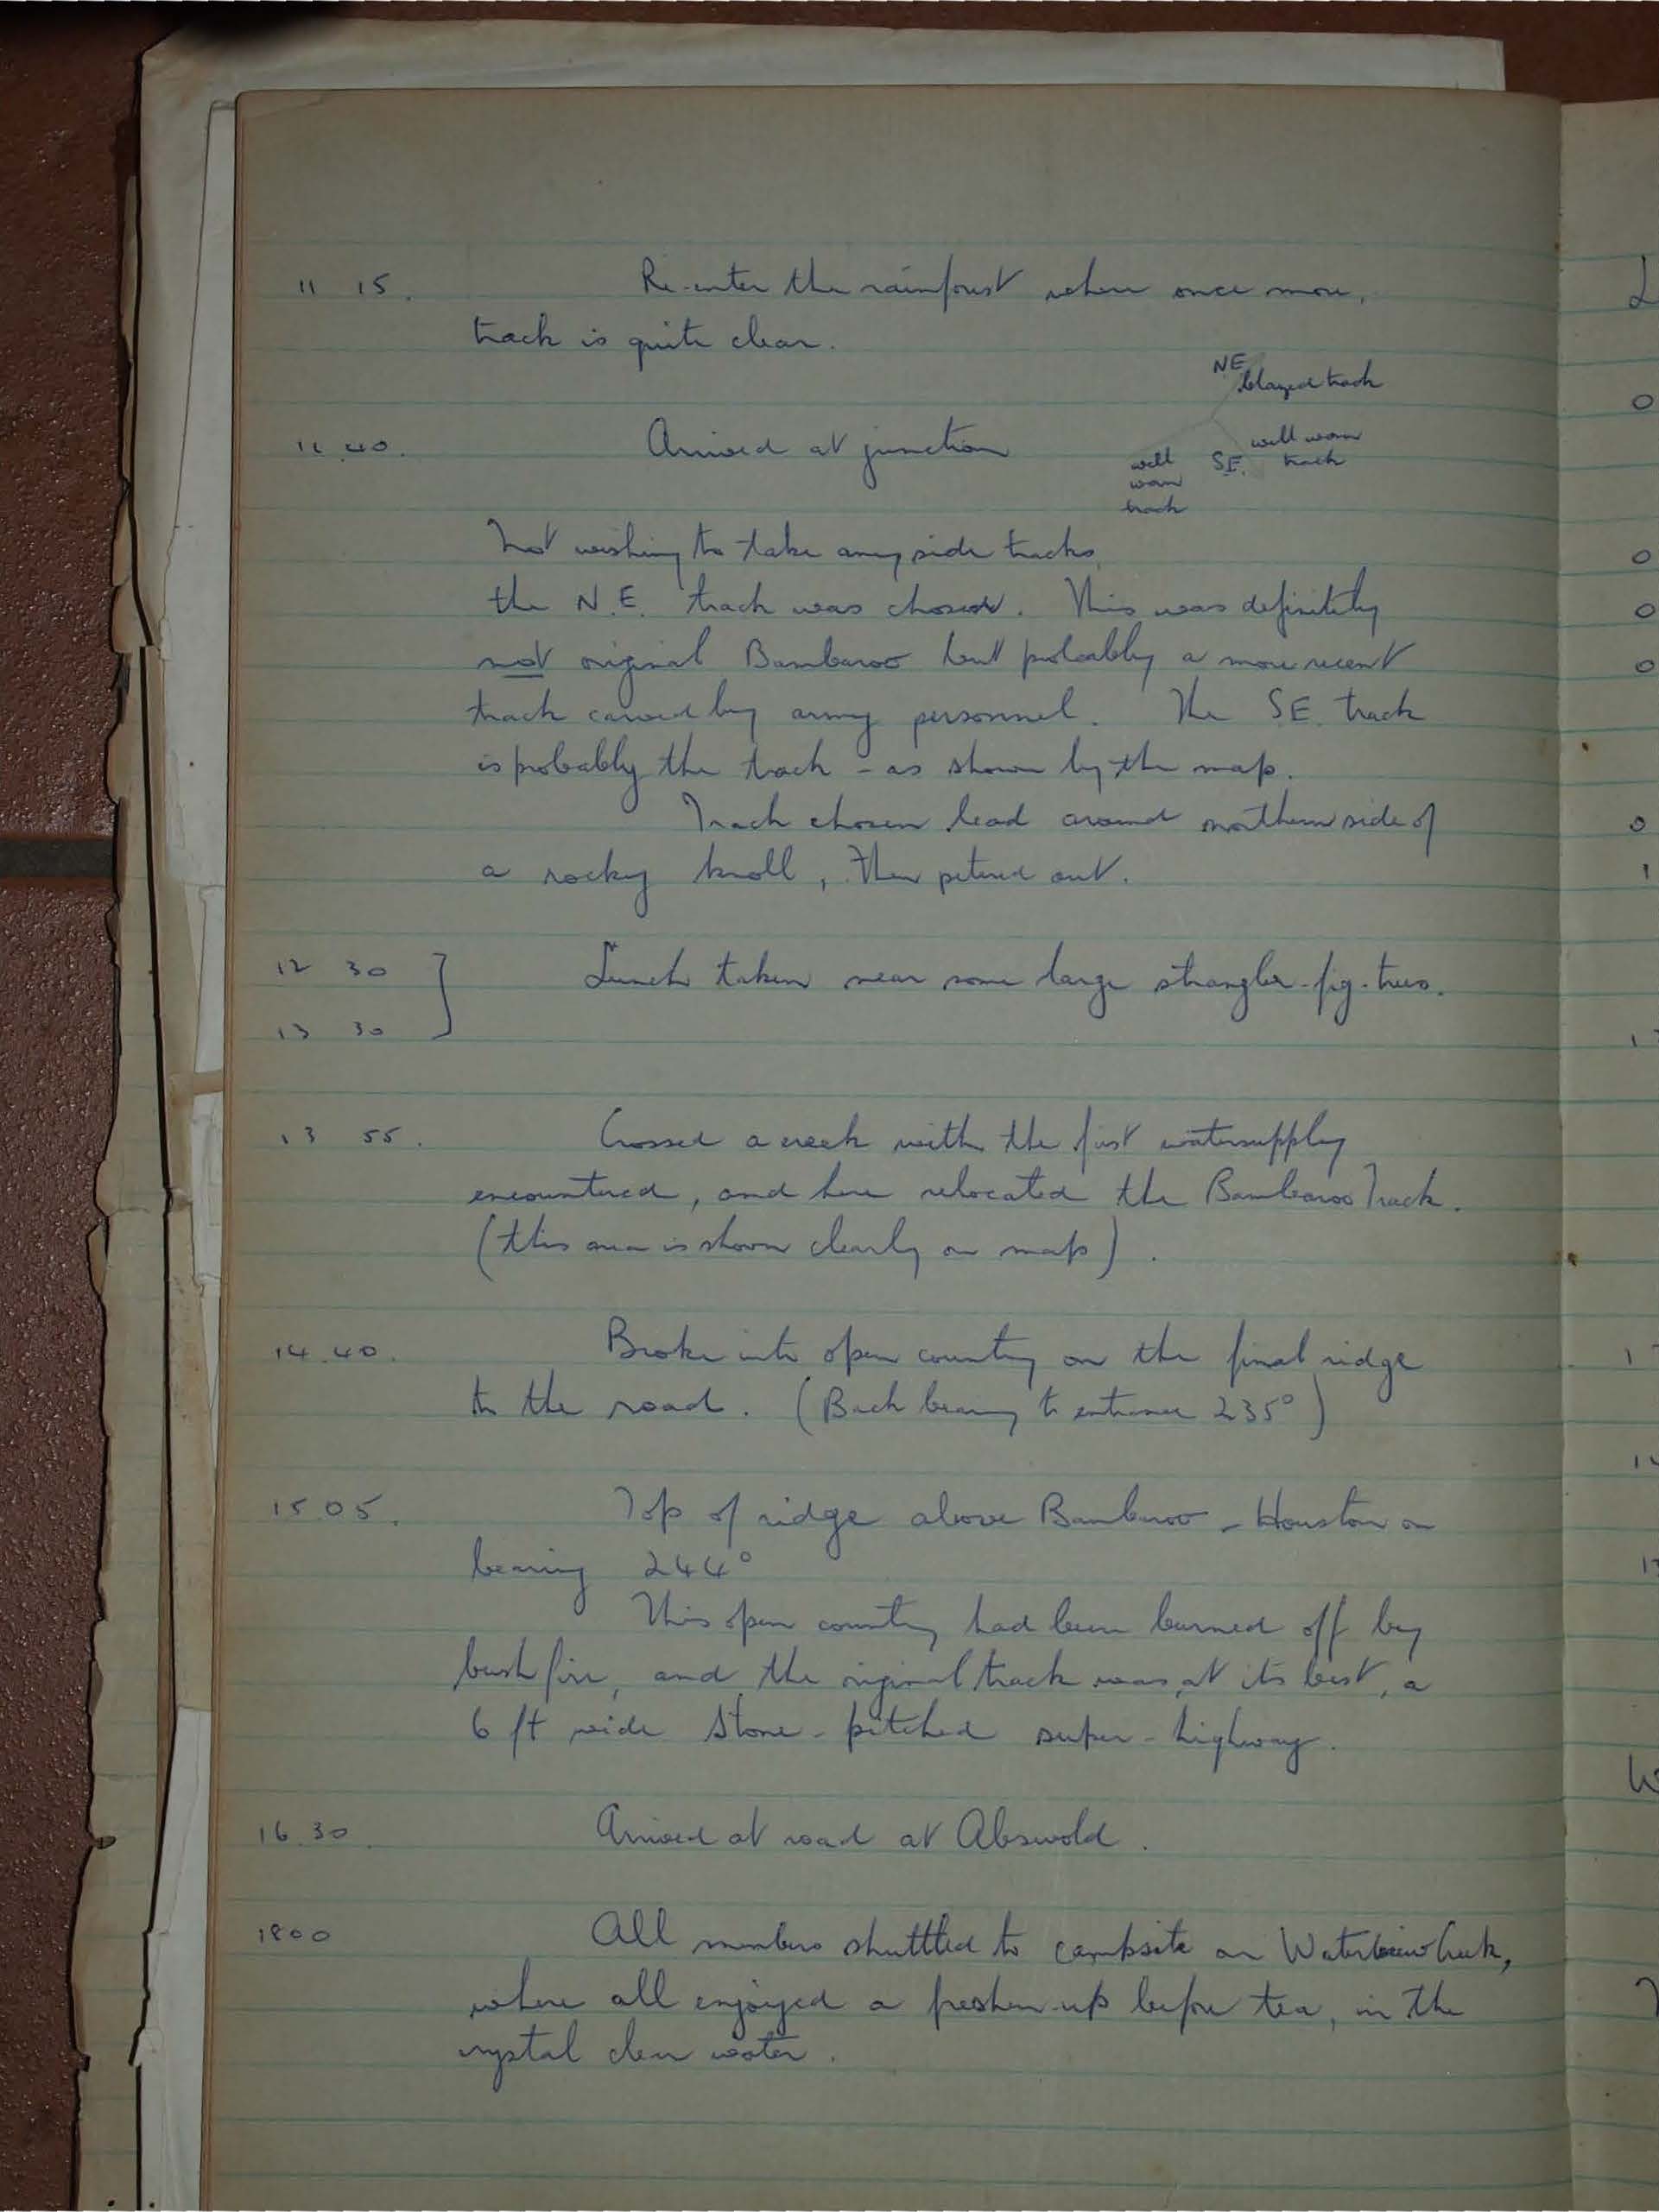 11 15. Re-enter the rainforest where once more,
track is quite clear.
NE
blazed track
11 40. Arrived at junction
well worn
track
SE.
well
worn
track
Not wishing to take any side tracks,
the N.E. track was chosen. This was definitely
not original Bambaroo but probably a more recent
track carved by army personnel. The SE. track
is probably the track - as shown by the map.
Track chosen lead around northern side of
a rocky knoll, then petered out.
12 30 ] Lunch taken near some large strangler-fig-trees.
13 30
13 55. Crossed a creek with the first watersupply
encountered, and here relocated the Bambaroo Track.
(this area is shown clearly on map).
14.40. Broke into open country on the final ridge
to the road. (Back bearing to entrance 235°)
15 05. Top of ridge above Bambaroo - Houston on
bearing 244°
This open country had been burned off by
bush fire, and the original track was, at its best, a
6 ft wide stone-pitched super-highway.
16.30. Arrived at road at Abswold.
1800 All members shuttled to campsite on Waterview Creek,
where all enjoyed a freshen-up before tea, in the
crystal clear water.